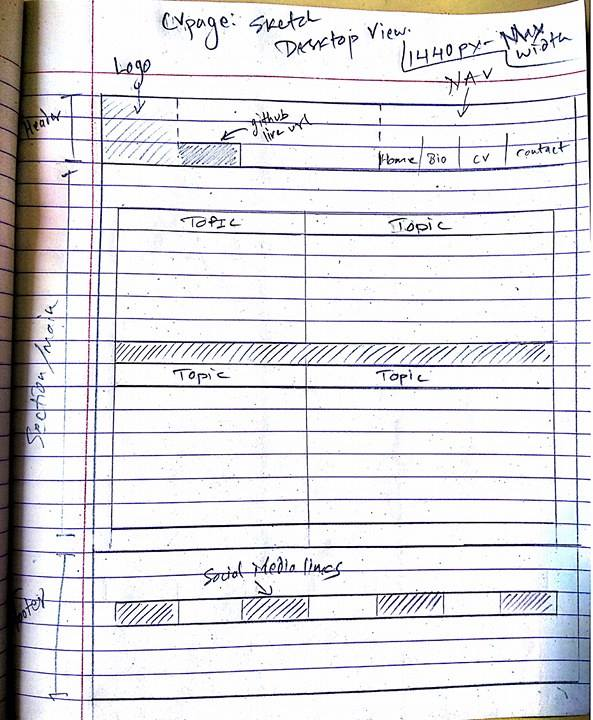 CVpage: Sketch
Desktop View.
1440px - Max width
Logo
NAV
Header
github
live url
Home Bio CV contact
Topic Topic
Section/Main
Topic Topic
Social Media lings
Footer